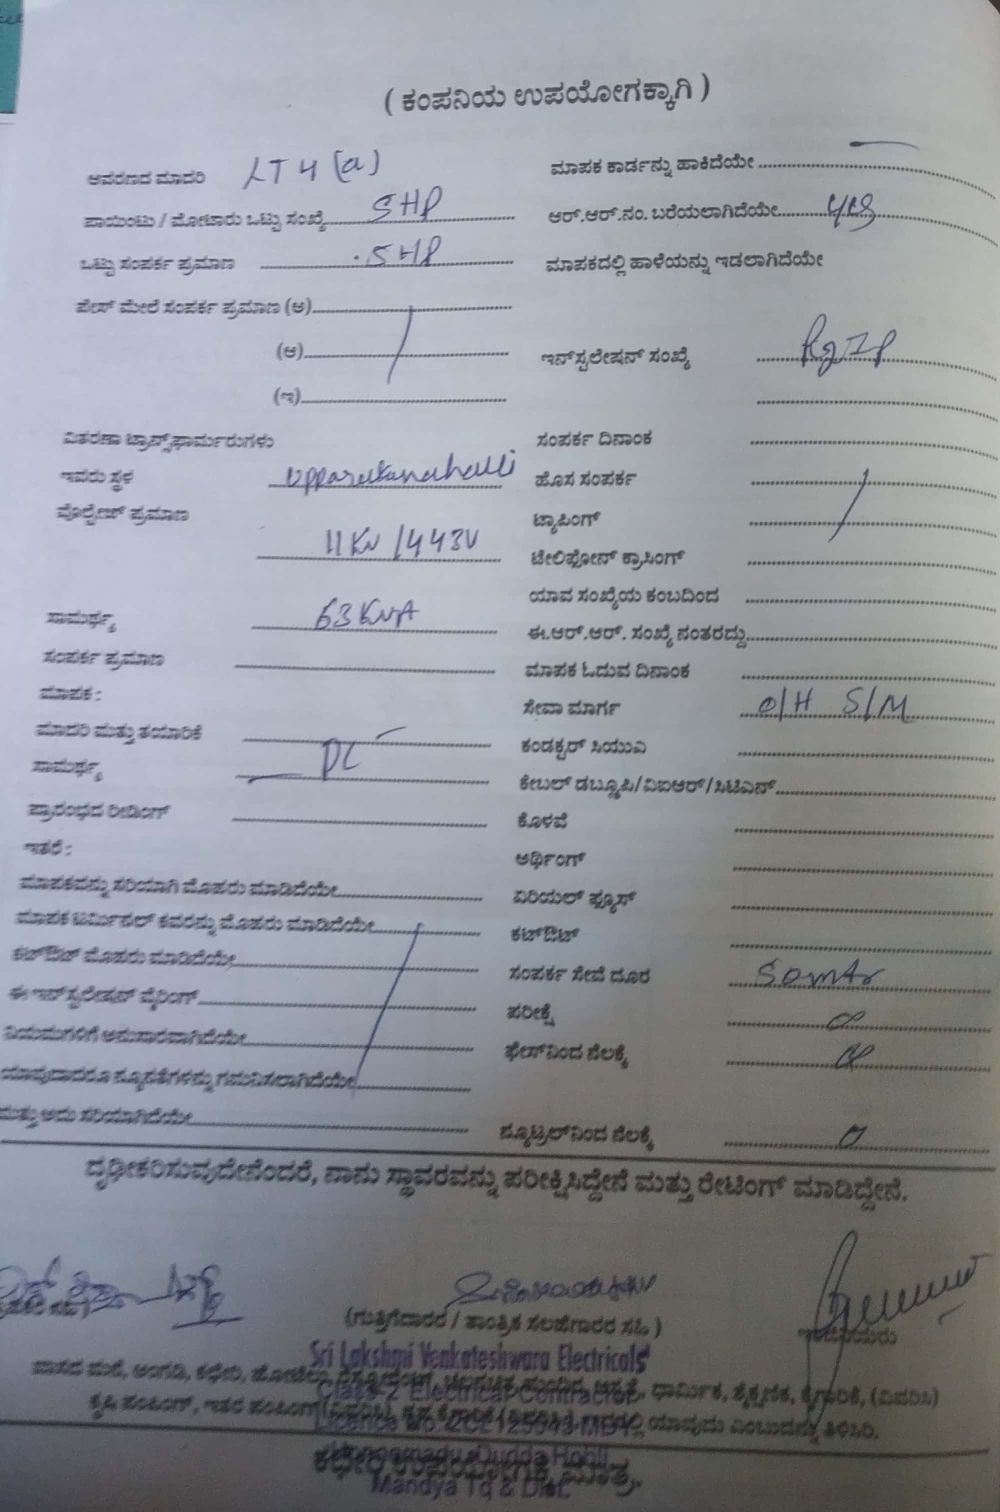 ( ಕಂಪನಿಯ ಉಪಯೋಗಕ್ಕಾಗಿ )
ಆವರಣದ ಮಾದರಿ LT 4 (a)
ಮಾಪಕ ಕಾರ್ಡನ್ನು ಹಾಕಿದೆಯೇ
ಪಾಯಿಂಟು / ಮೋಟಾರು ಒಟ್ಟು ಸಂಖ್ಯೆ 5HP
ಆರ್.ಆರ್.ನಂ. ಬರೆಯಲಾಗಿದೆಯೇ yes
ಒಟ್ಟು ಸಂಪರ್ಕ ಪ್ರಮಾಣ 5HP
ಮಾಪಕದಲ್ಲಿ ಹಾಳೆಯನ್ನು ಇಡಲಾಗಿದೆಯೇ
ಪೇಸ್ ಮೇಲೆ ಸಂಪರ್ಕ ಪ್ರಮಾಣ (ಅ)
(ಆ)
ಇನ್‌ಸ್ಟಲೇಷನ್ ಸಂಖ್ಯೆ
(ಇ)
ವಿತರಣಾ ಟ್ರಾನ್ಸ್‌ಫಾರ್ಮರುಗಳು
ಸಂಪರ್ಕ ದಿನಾಂಕ
ಇವರು ಸ್ಥಳ
ಹೊಸ ಸಂಪರ್ಕ
ವೊಲ್ಟೇಜ್ ಪ್ರಮಾಣ 11KV /443V
ಟ್ಯಾಪಿಂಗ್
ಟೇಲಿಫೋನ್ ಕ್ರಾಸಿಂಗ್
ಯಾವ ಸಂಖ್ಯೆಯ ಕಂಬದಿಂದ
ಸಾಮರ್ಥ್ಯ 63KVA
ಈ.ಆರ್.ಆರ್. ಸಂಖ್ಯೆ ನಂತರದ್ದು
ಸಂಪರ್ಕ ಪ್ರಮಾಣ
ಮಾಪಕ ಓದುವ ದಿನಾಂಕ
ಮಾಪಕ :
ಸೇವಾ ಮಾರ್ಗ O/H S/M
ಮಾದರಿ ಮತ್ತು ತಯಾರಿಕೆ
ಕಂಡಕ್ಟರ್ ಸಿಯುವಿ
ಸಾಮರ್ಥ್ಯ DL
ಕೇಬಲ್ ಡಬ್ಲ್ಯೂಪಿ/ವಿಐಆರ್/ಸಿಟಿಎನ್
ಪ್ರಾರಂಭದ ರೀಡಿಂಗ್
ಕೊಳವೆ
ಇತರೆ :
ಅರ್ಥಿಂಗ್
ಮಾಪಕವನ್ನು ಸರಿಯಾಗಿ ಮೊಹರು ಮಾಡಿದೆಯೇ
ಏರಿಯಲ್ ಫ್ಯೂಸ್
ಮಾಪಕ ಟರ್ಮಿನಲ್ ಕವರನ್ನು ಮೊಹರು ಮಾಡಿದೆಯೇ
ಕಟ್‌ಔಟ್
ಕಟ್‌ಔಟ್ ಮೊಹರು ಮಾಡಿದೆಯೇ
ಸಂಪರ್ಕ ಸೇವೆ ದೂರ
ಈ ಇನ್‌ಸ್ಟಲೇಷನ್ ವೈರಿಂಗ್
ಪರೀಕ್ಷೆ
ನಿಯಮಗಳಿಗೆ ಅನುಸಾರವಾಗಿದೆಯೇ
ಫೇಸ್‌ನಿಂದ ನೆಲಕ್ಕೆ
ಯಾವುದಾದರೂ ನ್ಯೂನತೆಗಳನ್ನು ಗಮನಿಸಲಾಗಿದೆಯೇ
ಮತ್ತು ಅದು ಸರಿಯಾಗಿದೆಯೇ
ನ್ಯೂಟ್ರಲ್‌ನಿಂದ ನೆಲಕ್ಕೆ
ದೃಢೀಕರಿಸುವುದೇನೆಂದರೆ, ನಾನು ಸ್ಥಾವರವನ್ನು ಪರೀಕ್ಷಿಸಿದ್ದೇನೆ ಮತ್ತು ರೇಟಿಂಗ್ ಮಾಡಿದ್ದೇನೆ.
(ಗುತ್ತಿಗೆದಾರರ / ತಾಂತ್ರಿಕ ಸಲಹೆಗಾರರ ಸಹಿ )
Sri Lakshmi Venkateshwara Electricals
ವಾಸದ ಮನೆ, ಅಂಗಡಿ, ಕಛೇರಿ, ಧಾರ್ಮಿಕ, ಶೈಕ್ಷಣಿಕ, ಕೈಗಾರಿಕೆ, (ವಿವರಿಸಿ)
Class-2 Electrical Contractor
ಕೃಷಿ ಪಂಪಿಂಗ್, ಇತರ ಪಂಪಿಂಗ್ ಯಾವುದು ಎಂಬುದನ್ನು ತಿಳಿಸಿರಿ.
ಕಛೇರಿ ಉಪಯೋಗಕ್ಕೆ ಮಾತ್ರ.
Mandya Tq & Dist.